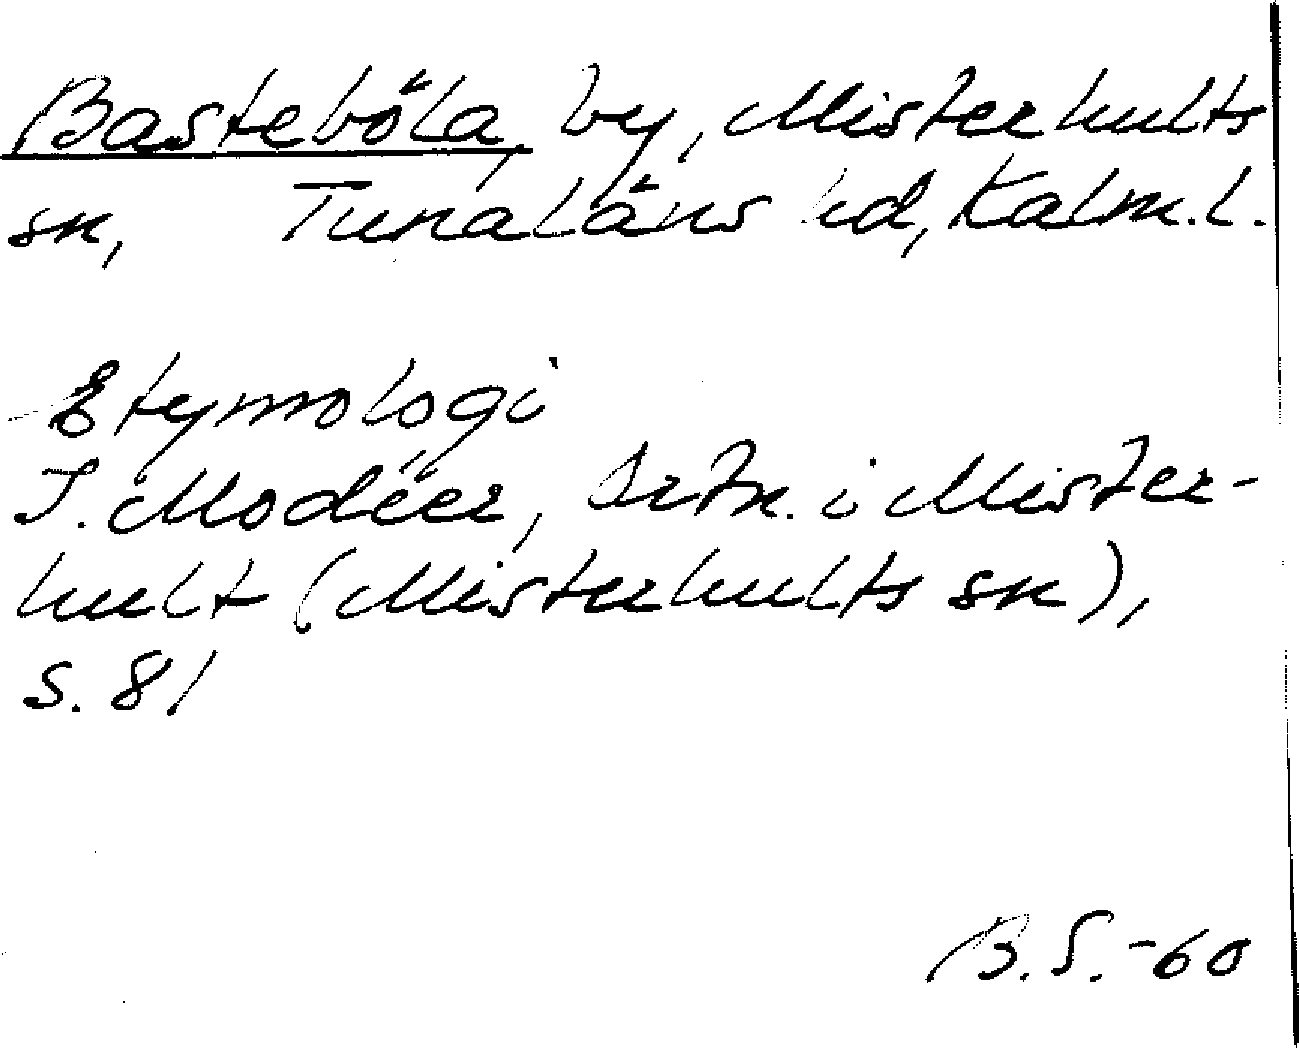 Basteböla, by, Misterhults
sn, Tunaläns hd, Kalm.l.
Etymologi
I. Modéer, Ortn. i Mister-
hult (Misterhults sn),
s. 81
B.S.-60